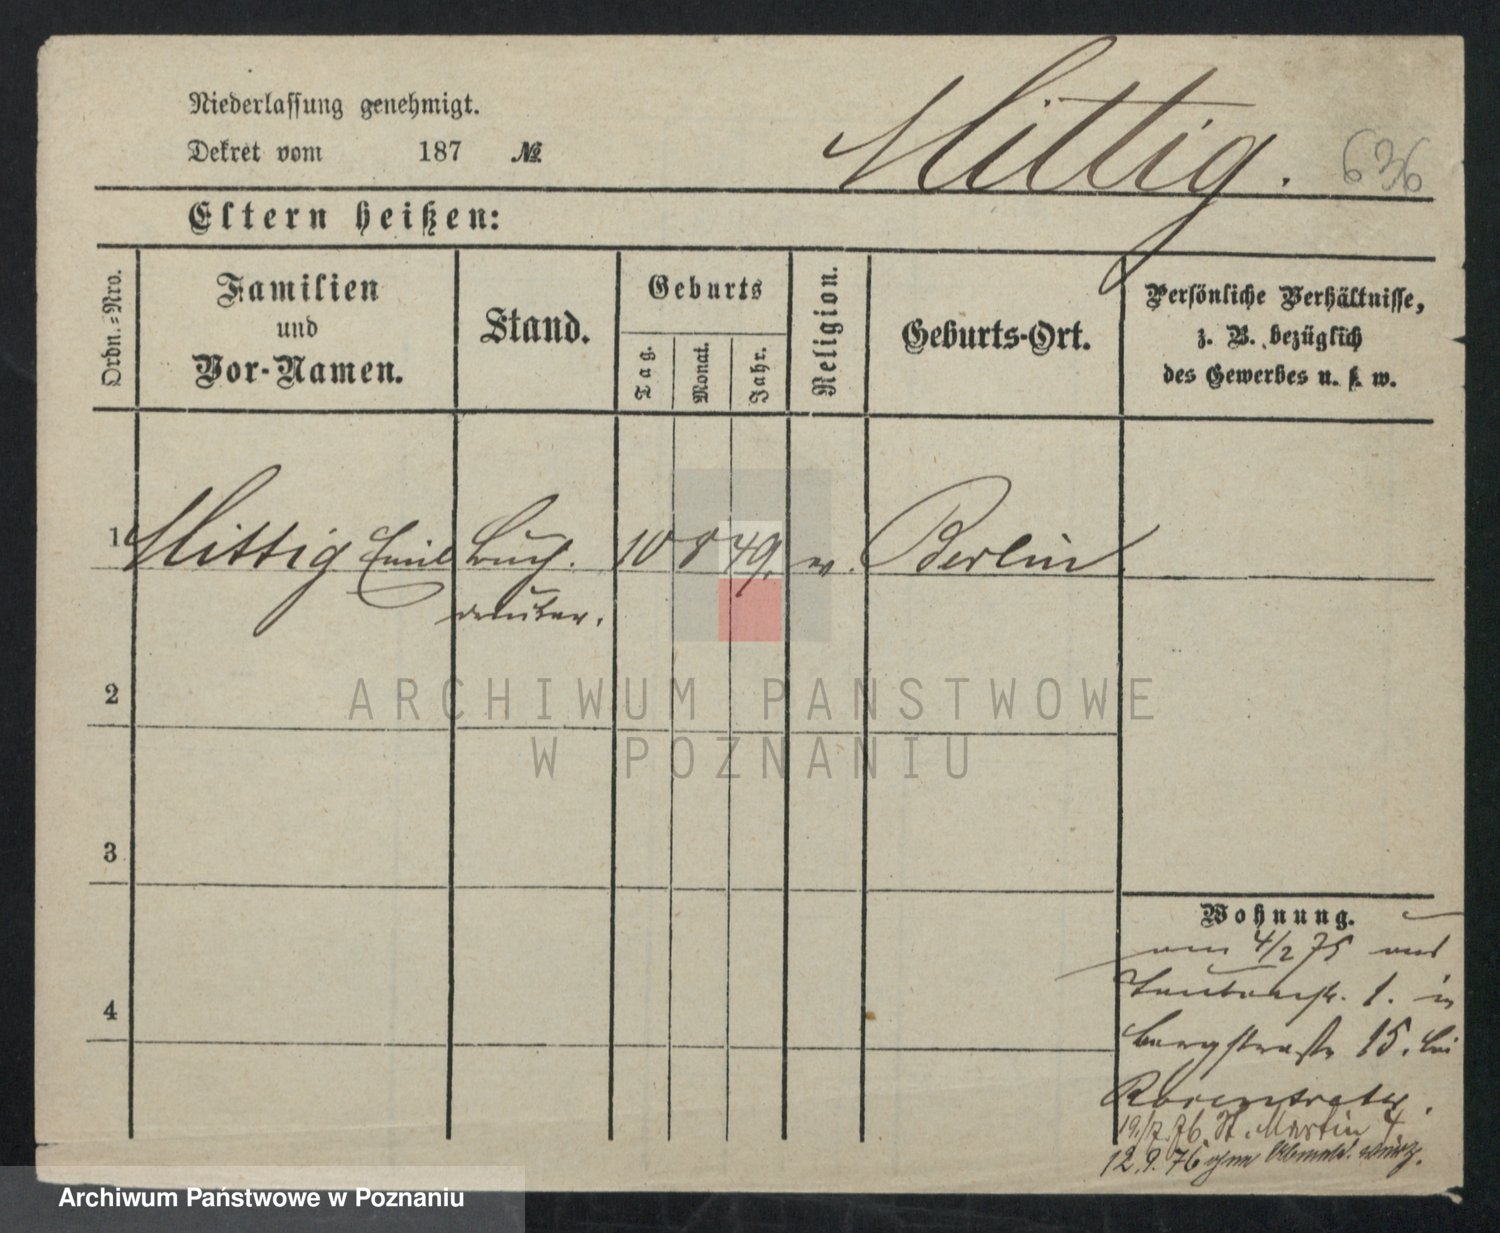 Niederlassung genehmigt.
Dekret vom 187 №
Mittig.
636
Eltern heißen:
Ordn.-Nro.
Familien
und
Vor-Namen.
Stand.
Geburts
Tag.
Monat.
Jahr.
Religion.
Geburts-Ort.
Persönliche Verhältnisse,
z. B. bezüglich
des Gewerbes u. s. w.
1 Mittig Emil Buch- 10 8 49. Berlin
drucker.
2
ARCHIWUM PAŃSTWOWE
W POZNANIU
3
4
Wohnung.
4/2 75 von
1. in
Bergstraße 15. bei
19/7. 76. St. Martin 4
12.9.76
Archiwum Państwowe w Poznaniu